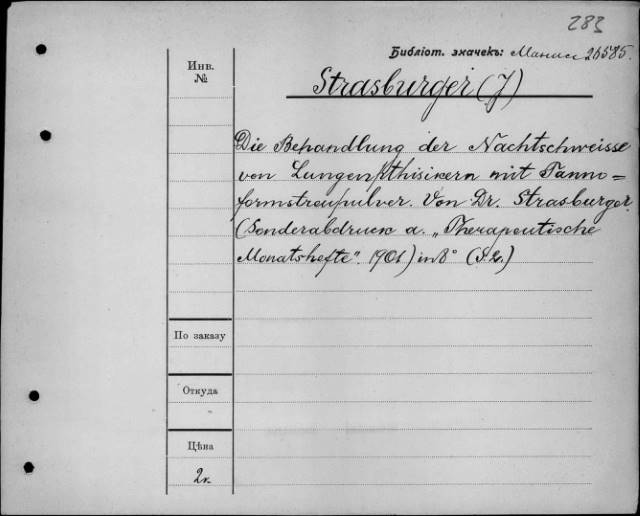 283
Библіот. значекъ: 26585.
Инв.
№
Strasburger (J)
Die Behandlung der Nachtschweisse
von Lungenphthisikern mit Tanno=
formstreupulver. Von Dr. Strasburger.
(Sonderabdruck a. „Therapeutische
Monatshefte“. 1901) in 8° (S. 2.)
По заказу
Откуда
Цѣна
2к.